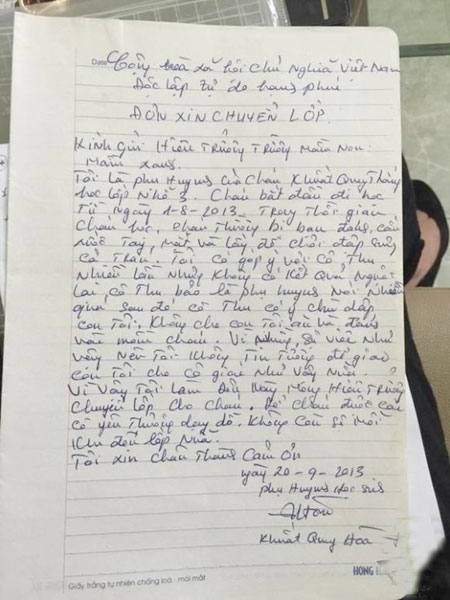 Date
Cộng hoà xã hội Chủ Nghĩa Việt Nam
Độc lập Tự do hạnh phúc
ĐƠN XIN CHUYỂN LỚP
Kính Gửi Hiệu Trưởng Trường Mầm Non
Mầm xanh
Tôi là phụ Huynh của Cháu Khuất Quy Thăng
học lớp Nhỡ 3. Cháu bắt đầu đi học
Từ Ngày 1-8-2013. Trong Thời gian
Cháu học, cháu Thường bị bạn đánh, cấu
Tay, mặt và lấy đồ chơi đập
cả Trán. Tôi có góp ý với cô Thu
Nhiều lần Nhưng không có kết Quả. Ngược
lại cô Thu bảo là phụ huynh Nói Nhiều
quá, sau đó cô Thu cố ý chù dập
con Tôi, không cho con Tôi ăn và đánh
vào mồm cháu. Vì Những sự việc Như
vậy Nên Tôi không Tin Tưởng để giao
con Tôi cho cô giáo Như Vậy Nữa.
Vì Vậy Tôi làm Đơn Này Mong Hiệu Trưởng
Chuyển lớp cho cháu. Để cháu được các
cô yêu Thương dạy dỗ. Không Còn sợ Mỗi
khi đến lớp Nữa.
Tôi xin Chân Thành Cảm Ơn
Ngày 20-9-2013
phụ Huynh Học sinh
Khuất Quy Hoà
HONG
Giấy trắng tự nhiên chống loá - mỏi mắt